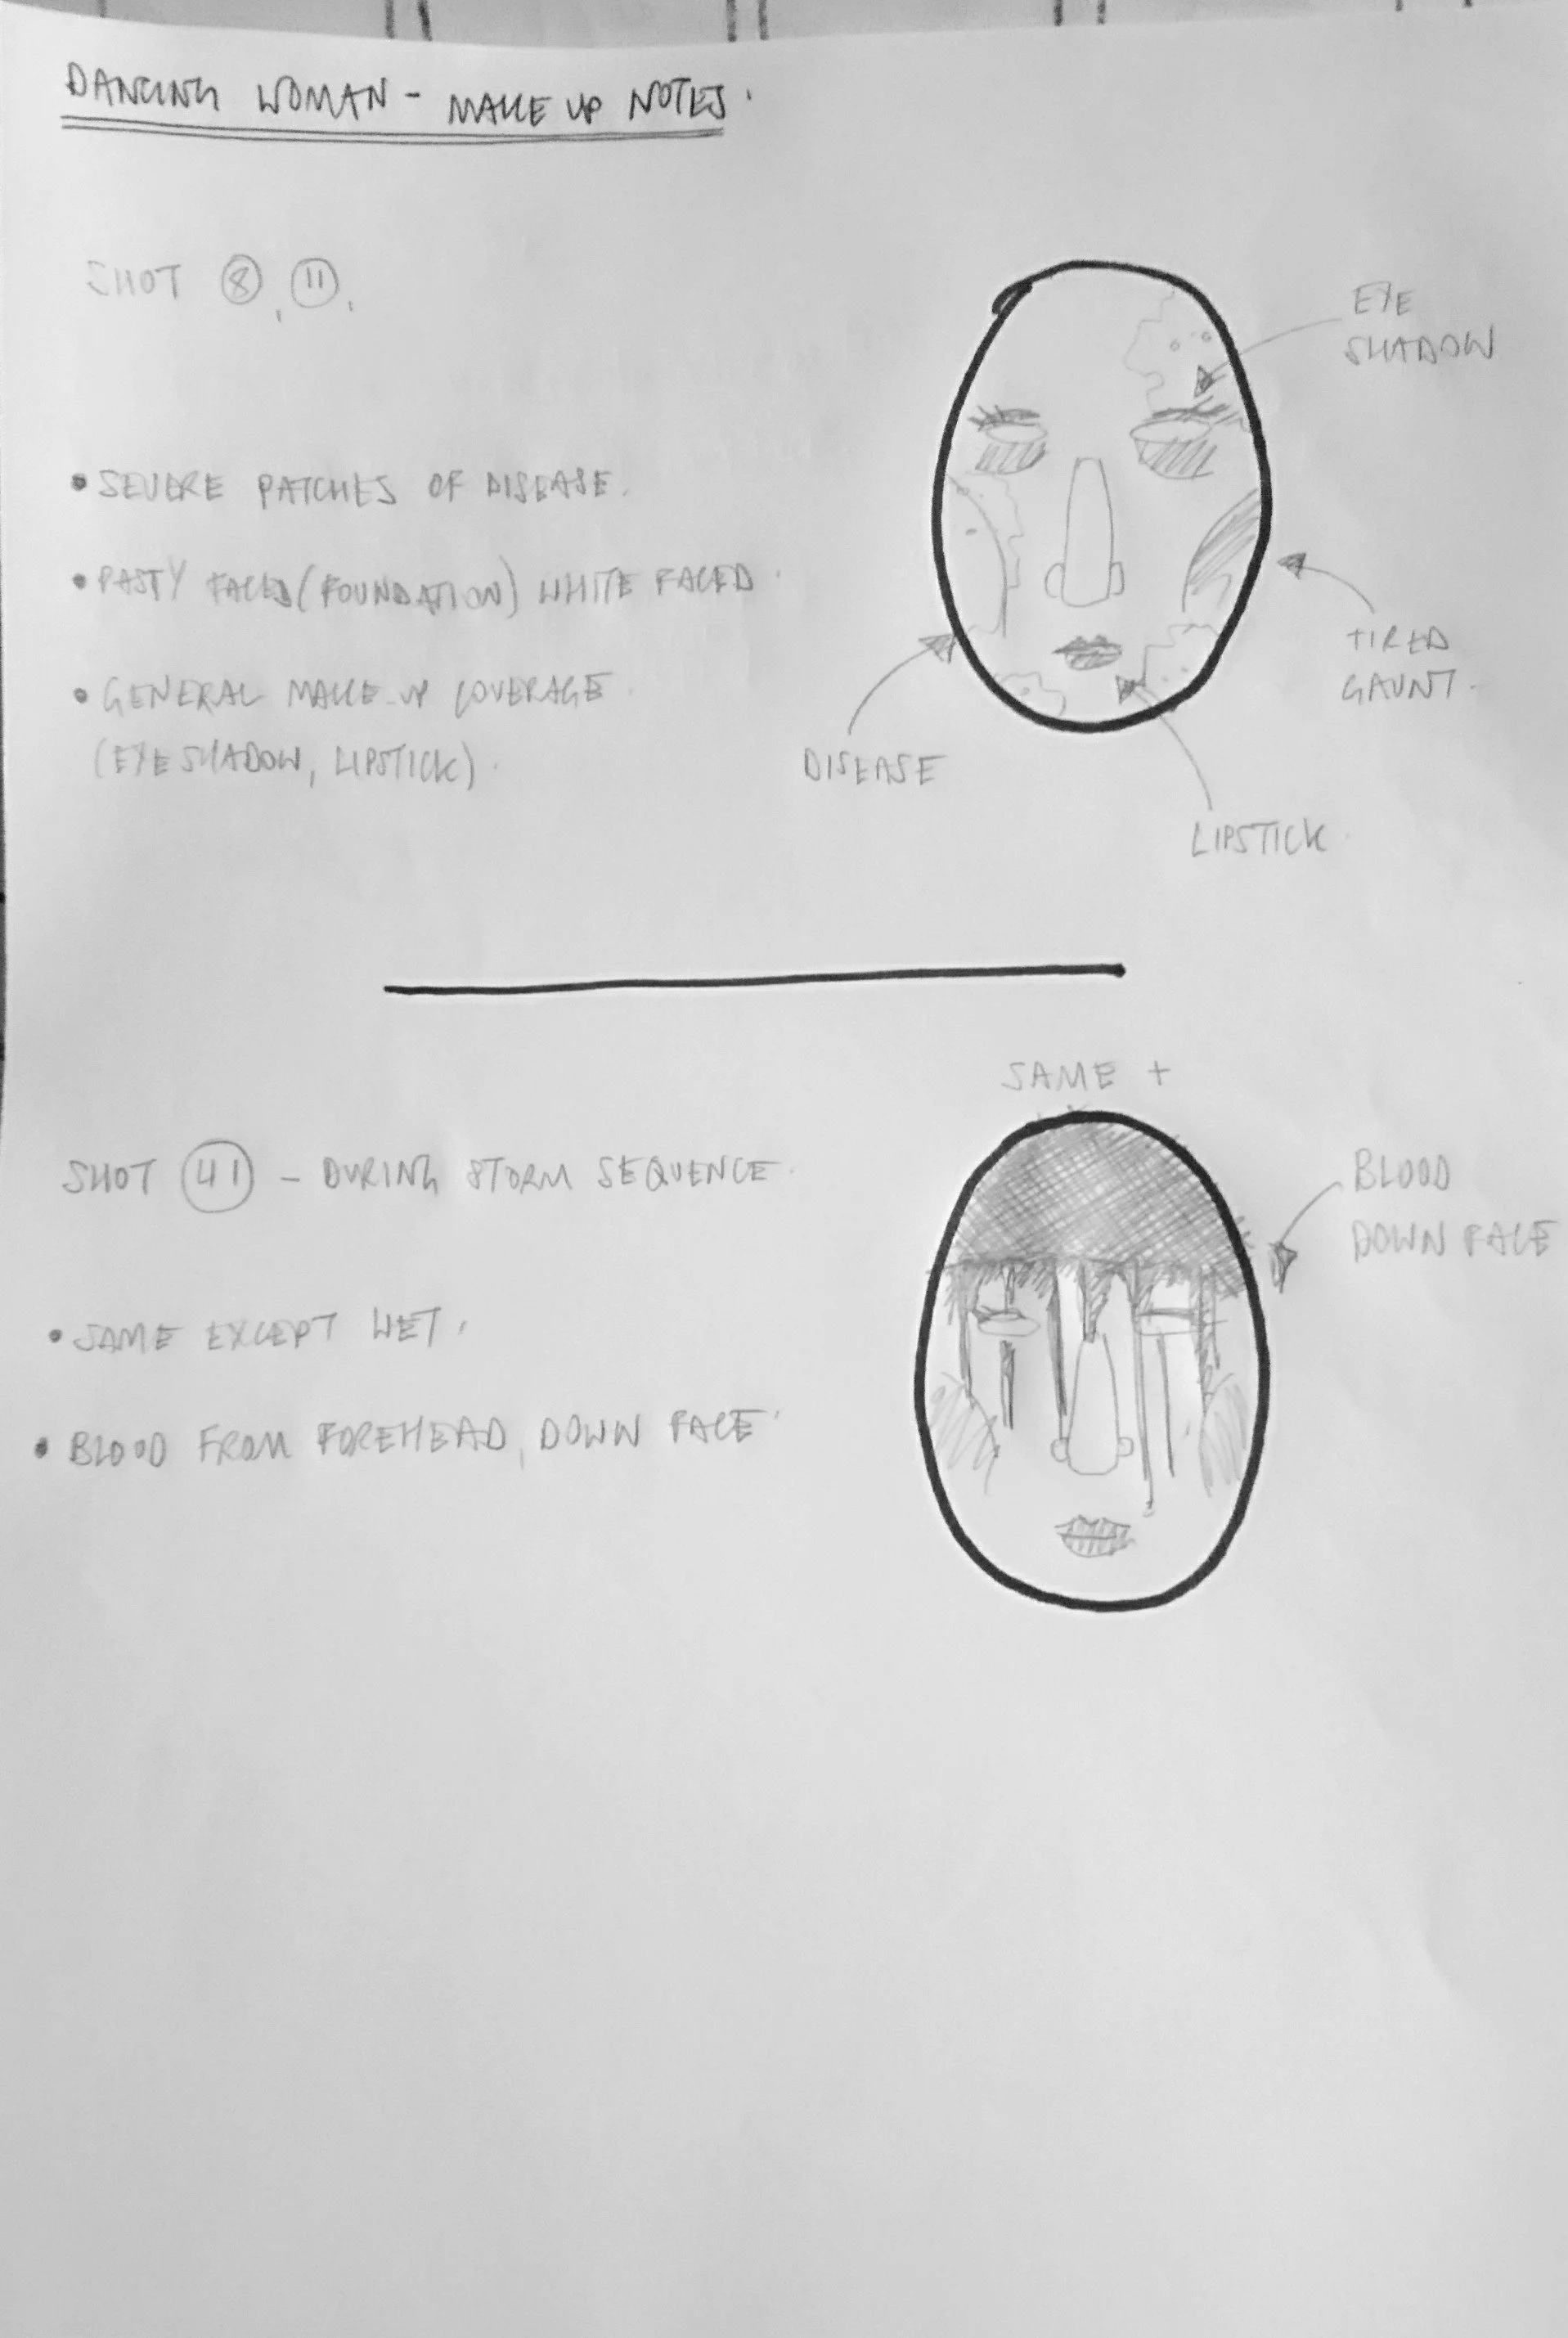 DANCING WOMAN - MAKE UP NOTES.
SHOT 8, 11.
• SEVERE PATCHES OF DISEASE.
• PASTY FACED (FOUNDATION) WHITE FACED.
• GENERAL MAKE-UP COVERAGE
(EYE SHADOW, LIPSTICK).
EYE
SHADOW
TIRED
GAUNT.
DISEASE
LIPSTICK.
SAME +
SHOT 41 - DURING STORM SEQUENCE.
• SAME EXCEPT WET.
• BLOOD FROM FOREHEAD, DOWN FACE.
BLOOD
DOWN FACE